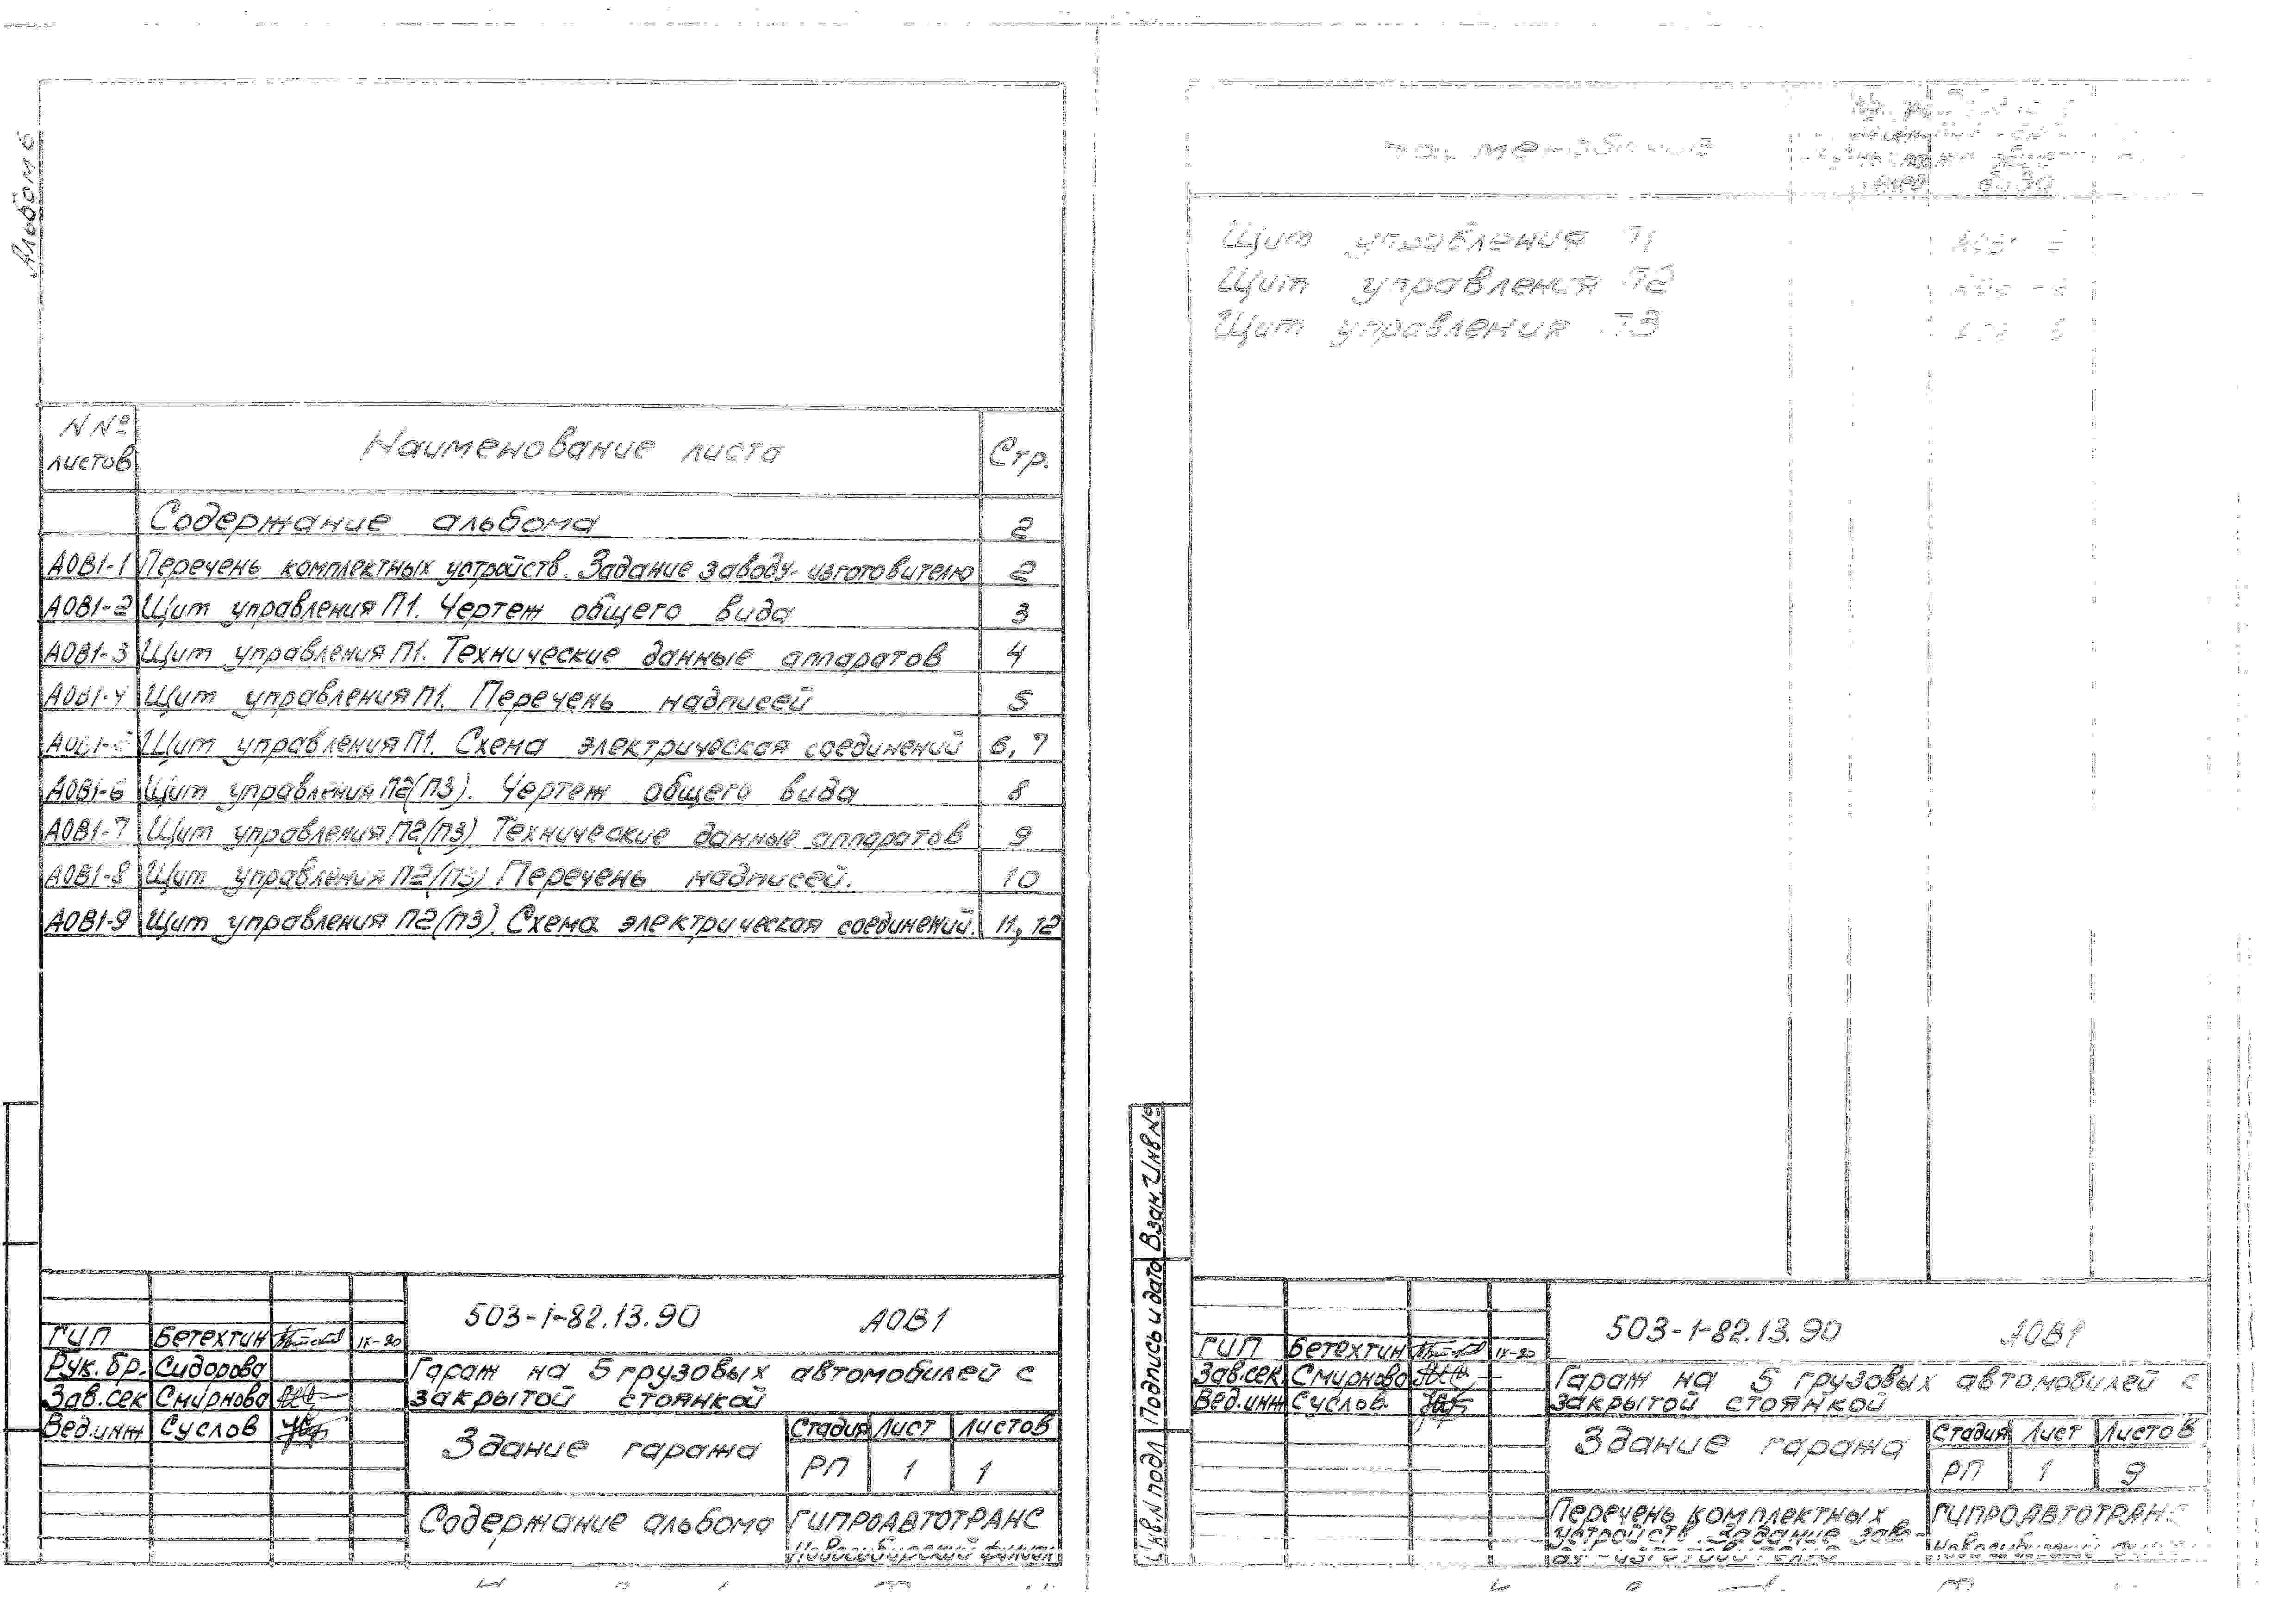 Альбом 6
NNº листов Наименование листа Стр.
Содержание альбома 2
АОВ1-1 Перечень комплектных устройств. Задание заводу-изготовителю 2
АОВ1-2 Щит управления П1. Чертеж общего вида 3
АОВ1-3 Щит управления П1. Технические данные аппаратов 4
АОВ1-4 Щит управления П1. Перечень надписей 5
АОВ1-5 Щит управления П1. Схема электрическая соединений 6, 7
АОВ1-6 Щит управления П2(П3). Чертеж общего вида 8
АОВ1-7 Щит управления П2(П3) Технические данные аппаратов 9
АОВ1-8 Щит управления П2(П3) Перечень надписей. 10
АОВ1-9 Щит управления П2(П3). Схема электрическая соединений. 11, 12
503-1-82.13.90 АОВ1
ГИП Бетехтин IX-90
Рук. бр. Сидорова
Зав.сек Смирнова
Вед.инж Суслов
Гараж на 5 грузовых автомобилей с
закрытой стоянкой
Здание гаража
Стадия Лист Листов
РП 1 1
Содержание альбома
ГИПРОАВТОТРАНС
Новосибирский филиал
Наименование
Щит управления П1
Щит управления П2
Щит управления П3
Взам. Инв №
Подпись и дата
Инв. N подл
503-1-82.13.90 АОВ1
ГИП Бетехтин IX-90
Зав.сек. Смирнова
Вед.инж Суслов.
Гараж на 5 грузовых автомобилей с
закрытой стоянкой
Здание гаража
Стадия Лист Листов
РП 1 9
Перечень комплектных
устройств. Задание заво-
ду-изготовителю
ГИПРОАВТОТРАНС
Новосибирский филиал